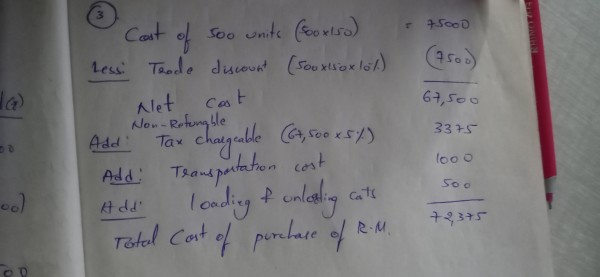 ③
Cost of 500 units (500x150) = 75000
Less: Trade discount (500x150x10%) (7500)
Net Cost 67,500
Non-Refungable
Add: Tax chargeable (67,500 x 5%) 3375
Add: Transportation cost 1000
Add: loading & unloading cats 500
Total Cost of purchase of R.M. 72,375